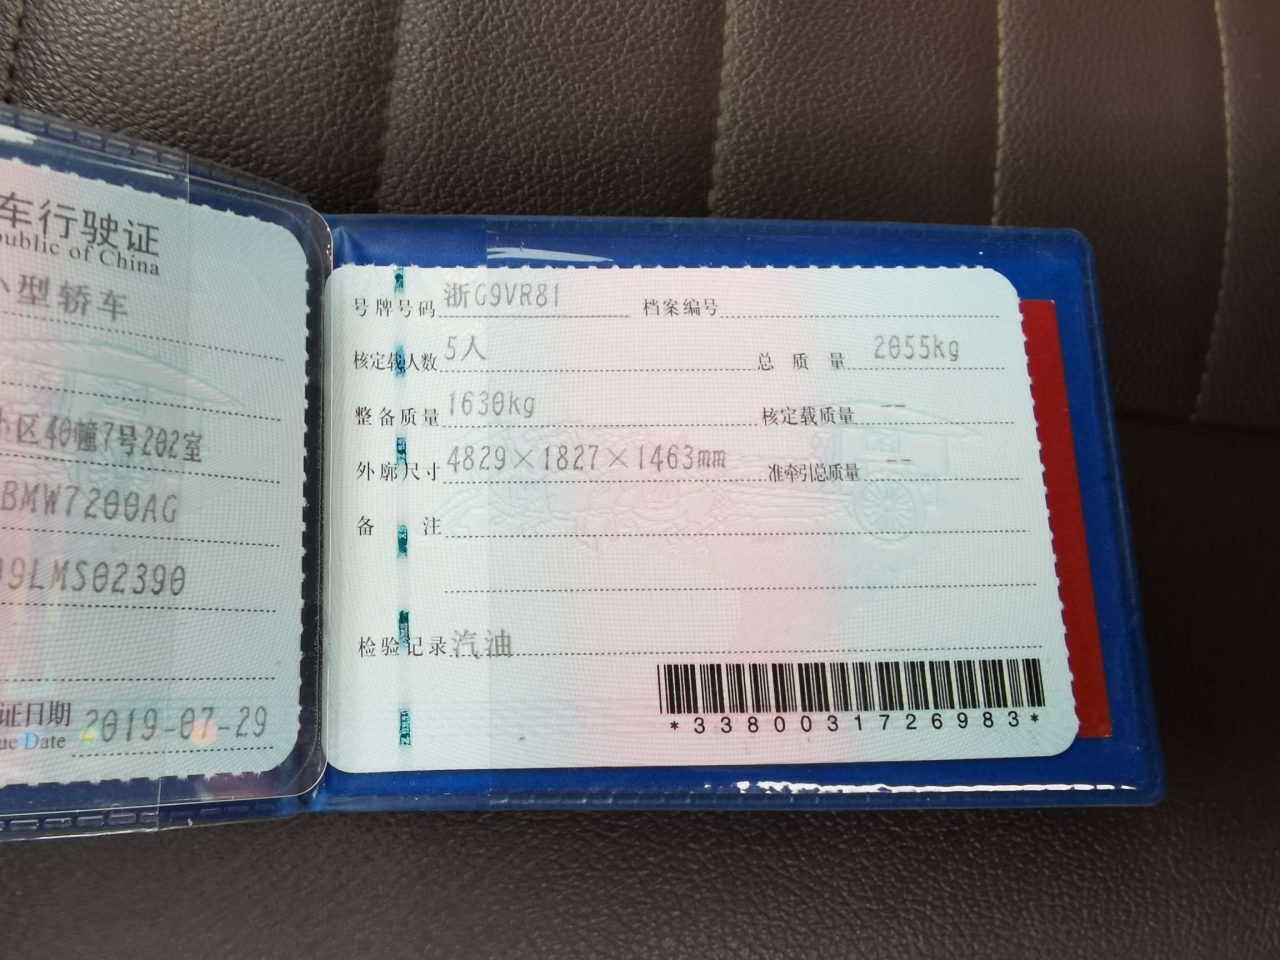 车行驶证
public of China
小型轿车
小区40幢7号202室
BMW7200AG
9LMS02390
证日期 2019-07-29
ue Date
号牌号码 浙G9VR81 档案编号
核定载人数 5人 总质量 2055kg
整备质量 1630kg 核定载质量 --
外廓尺寸 4829×1827×1463mm 准牵引总质量 --
备注
检验记录 汽油
*3380031726983*